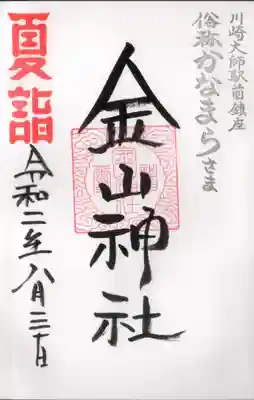 川崎大師駅前鎮座
俗称かなまらさま
金山神社
夏詣
令和二年八月三十日